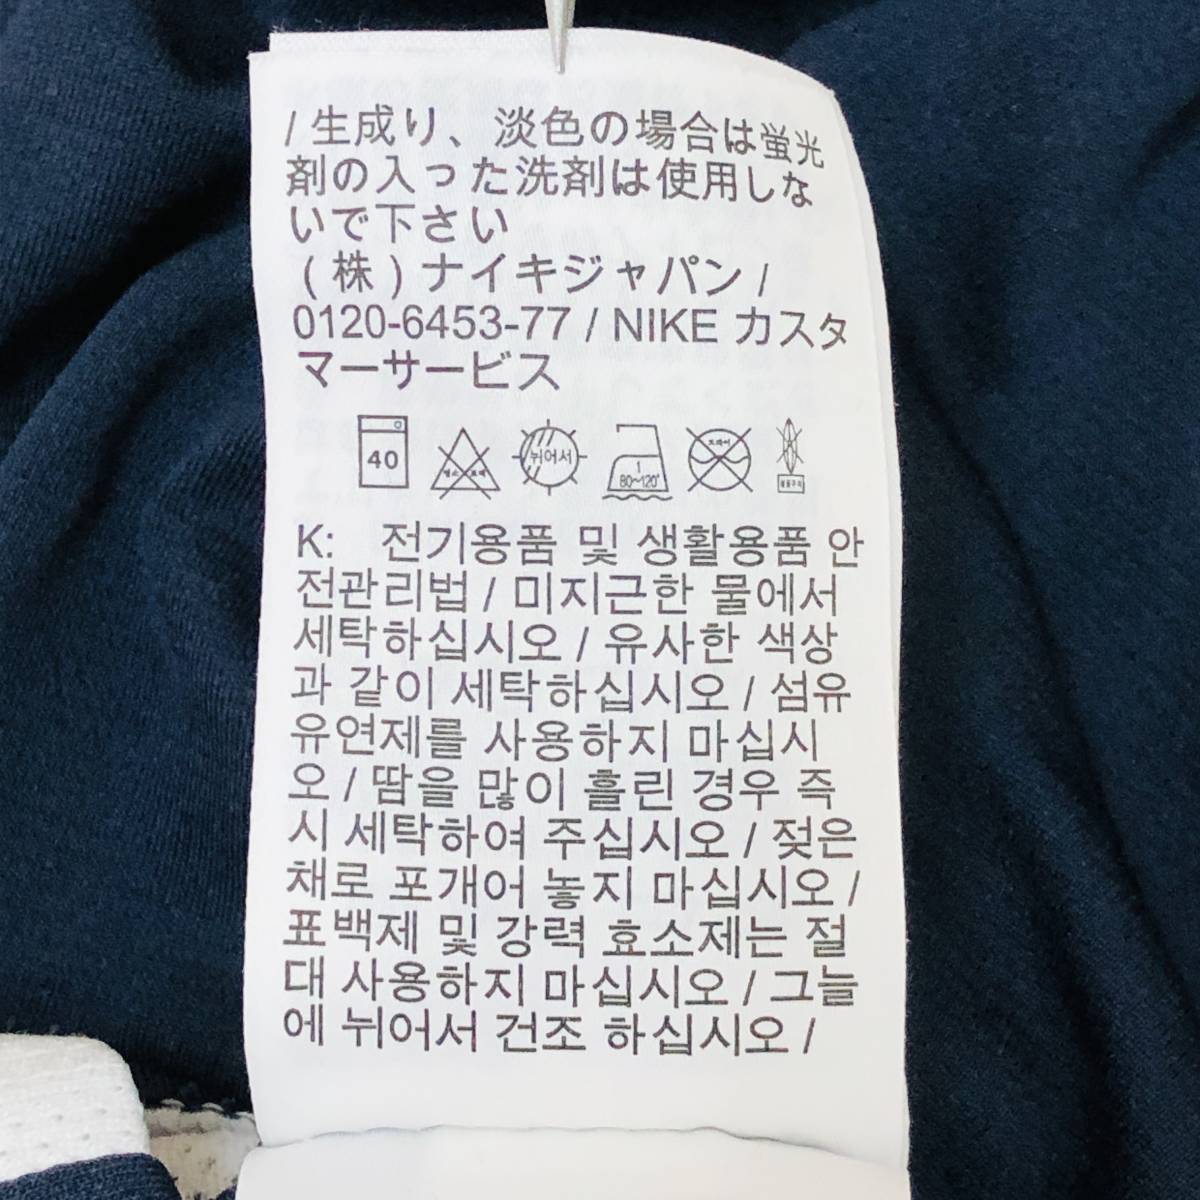 / 生成り、淡色の場合は蛍光
剤の入った洗剤は使用しな
いで下さい
(株) ナイキジャパン /
0120-6453-77 / NIKE カスタ
マーサービス
40
뉘어서
1
80~120°
드라이
K: 전기용품 및 생활용품 안
전관리법 / 미지근한 물에서
세탁하십시오 / 유사한 색상
과 같이 세탁하십시오 / 섬유
유연제를 사용하지 마십시
오 / 땀을 많이 흘린 경우 즉
시 세탁하여 주십시오 / 젖은
채로 포개어 놓지 마십시오 /
표백제 및 강력 효소제는 절
대 사용하지 마십시오 / 그늘
에 뉘어서 건조 하십시오 /